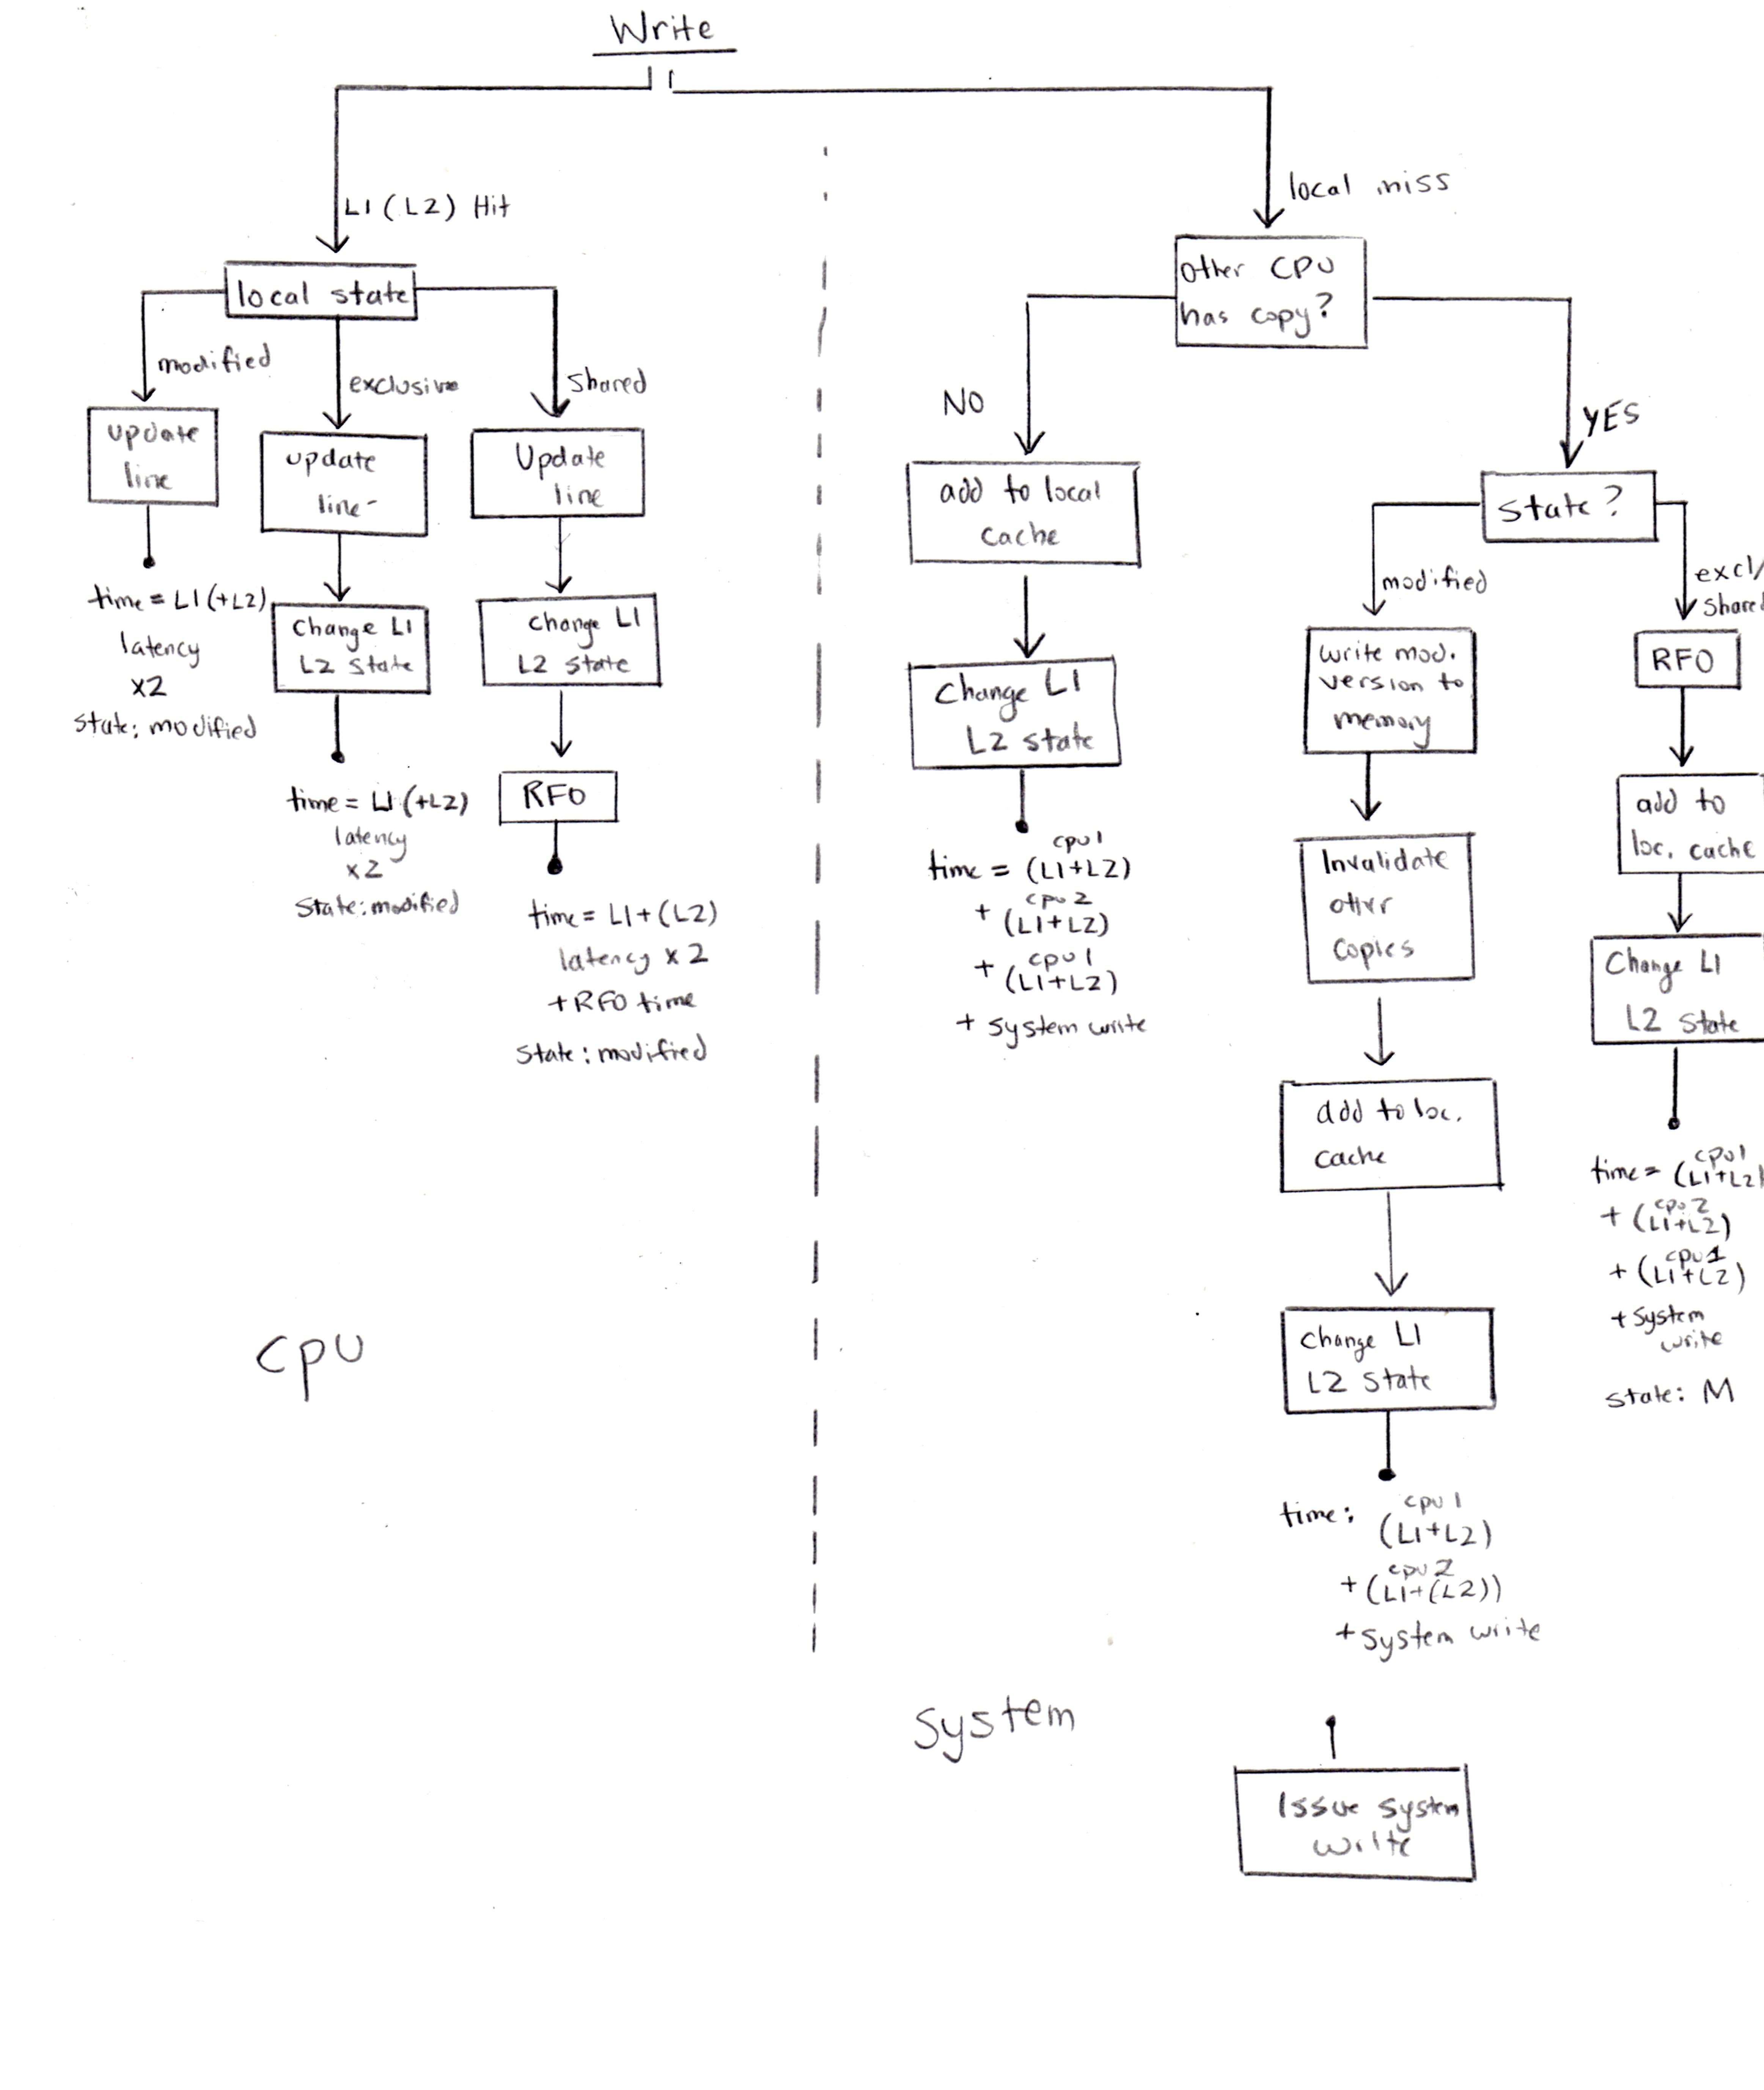 Write
L1 (L2) Hit
local state
modified
exclusive
shared
update
line
time = L1 (+L2)
latency
x2
state: modified
update
line-
change L1
L2 state
time = L1 (+L2)
latency
x2
state: modified
Update
line
change L1
L2 state
RFO
time = L1 + (L2)
latency x 2
+ RFO time
state: modified
cpu
local miss
other CPU
has copy?
NO
add to local
cache
Change L1
L2 state
cpu1
time = (L1+L2)
cpu2
+ (L1+L2)
cpu1
+ (L1+L2)
+ system write
YES
state?
modified
write mod.
version to
memory
Invalidate
other
copies
add to loc.
cache
change L1
L2 state
cpu1
time: (L1+L2)
cpu2
+ (L1+(L2))
+ system write
excl/
shared
RFO
add to
loc. cache
Change L1
L2 state
cpu1
time = (L1+L2)
cpu2
+ (L1+L2)
cpu1
+ (L1+L2)
+ system
write
state: M
System
Issue system
write